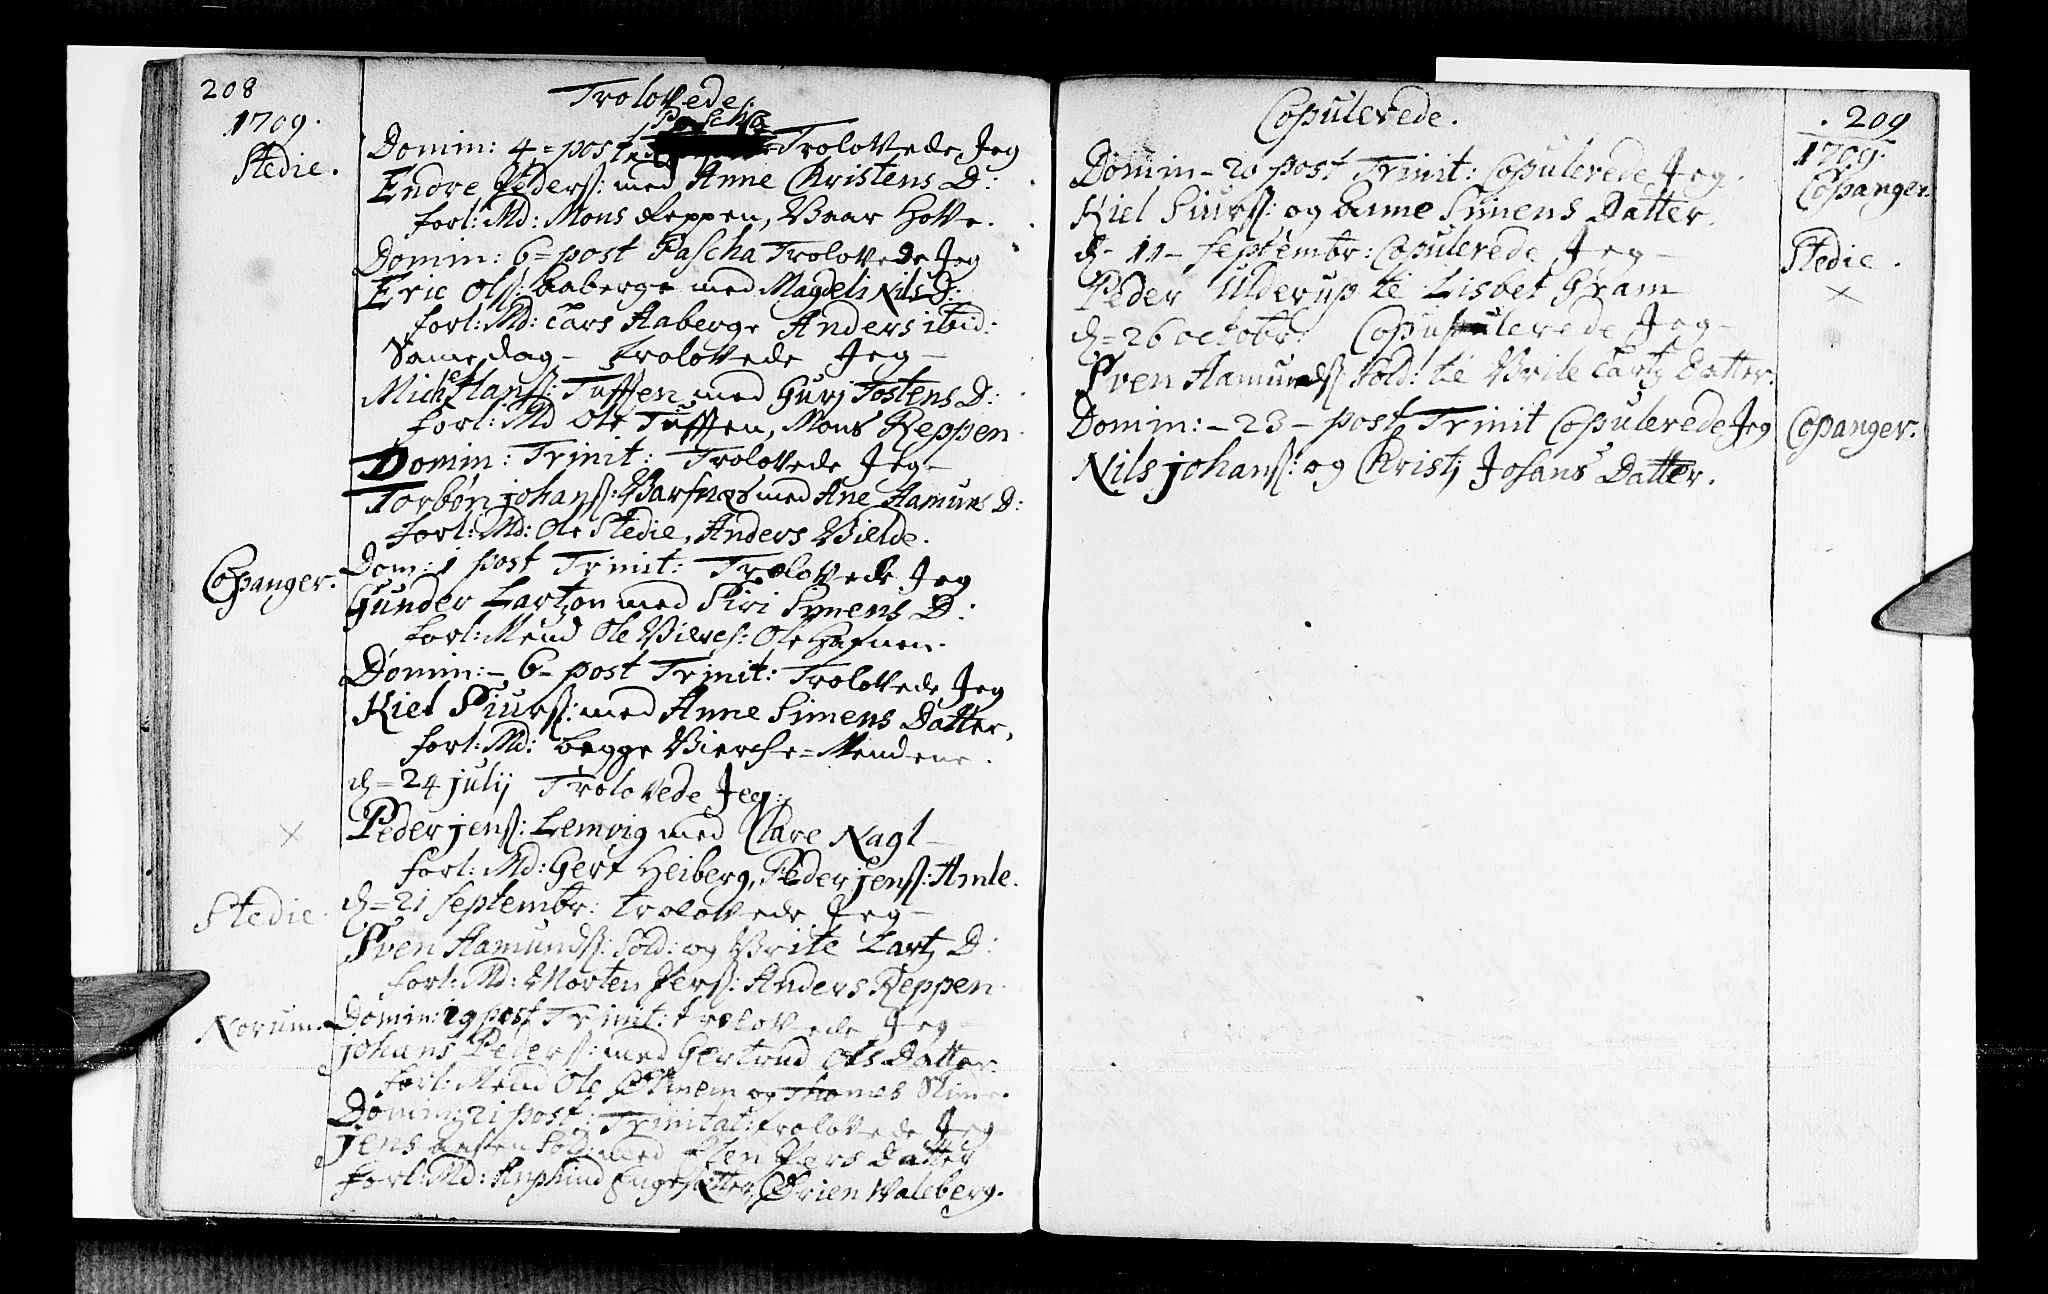 208
1709.
Stedie.
Trolovede.
Pascha
Domin: 4 = post Trolovede Jeg
Endre Peders: med Anne Christens D:
forl: Md: Mons Reppen, Baar Hove.
Domin: 6 = post Pascha Trolovede Jeg
Eric Ols: Aaberge med Magdeli Nils D:
forl: Md: Lars Aaberge Anders ibid:
Same dag - Trolovede Jeg -
Mich: Hans: Tuffen med Gurj Tostens D:
forl: Md Ole Tuffen, Mons Reppen.
Domin: Trinit: Trolovede Jeg -
Torbøn johans: Barsnes med Ane Aamuns D:
forl: Md: Ole Stedie, Anders Bielde.
Copanger.
Dom: 1 post Trinit: Trolovede Jeg
Gunder Lartzon med Siri Simens D:
forl: Mend Ole Ole Hafnen.
Domin: - 6 - post Trinit: Trolovede Jeg
Kiel Siurs: med Anne Simens Datter,
forl: Md: begge Mendene.
d = 24 julij Trolovede Jeg:
Peder jens: Lemvig med Clare Nagl -
forl: Md: Gert Heiberg, Peder jens: Amle.
Stedie.
d = 21 septembr: trolovede Jeg -
Sven Aamunds: Sold: og Brite Lartz D:
forl: Md: Morten Pers: Anders Reppen.
Norum.
Domin: 19 post Trinit: trolovede Jeg -
johans Peders: med Gertrud Ols Datter.
forl: Mend Ole og Thomas Slinde.
Domin: 21 post: Trinitat: trolovede Jeg
jens Sold: med Pers Datter
forl: Md: Waleberg.
Copulerede.
209
1709.
Copanger.
Domin - 20 post Trinit: Copulerede Jeg.
Kiel Siurs: og Anne Simens Datter.
Stedie.
d - 11 - septembr: Copulerede Jeg -
Peder Ulderup te Lisbet Gram
d = 26 octobr: Copulerede Jeg -
Sven Aamunds: Sold: te Brite Lartz Datter.
Copanger.
Domin: - 23 - post Trinit Copulerede Jeg
Nils johans: og Christj Johans Datter.